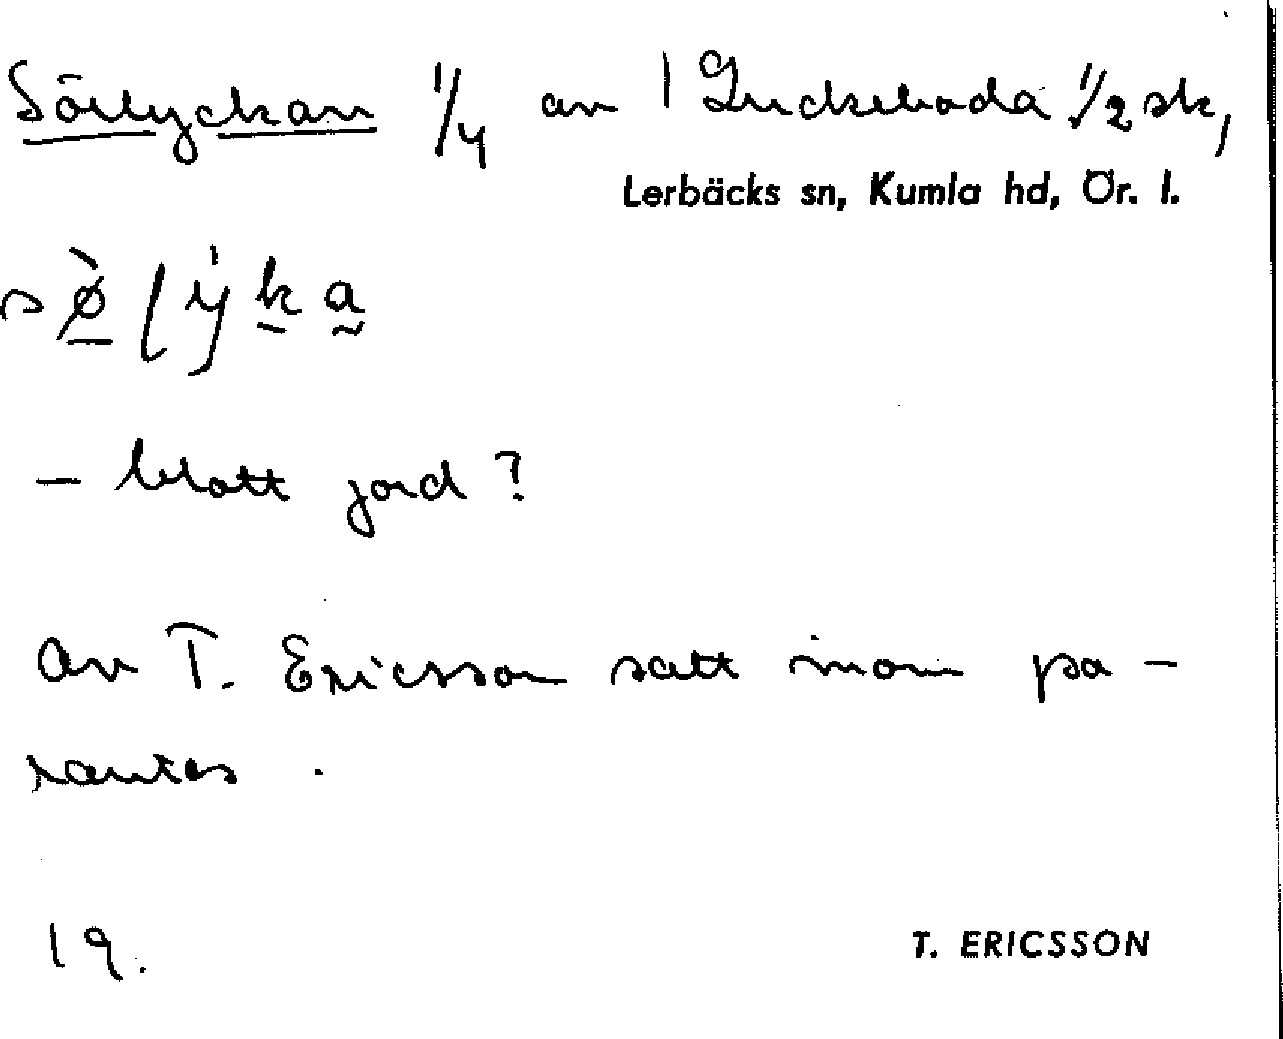 Sörlyckan 1/4 av 1 Luckeboda 1/2 sk,
Lerbäcks sn, Kumla hd, Ör. l.
– blott jord?
Av T. Ericsson satt inom pa-
rantes.
19.
T. ERICSSON